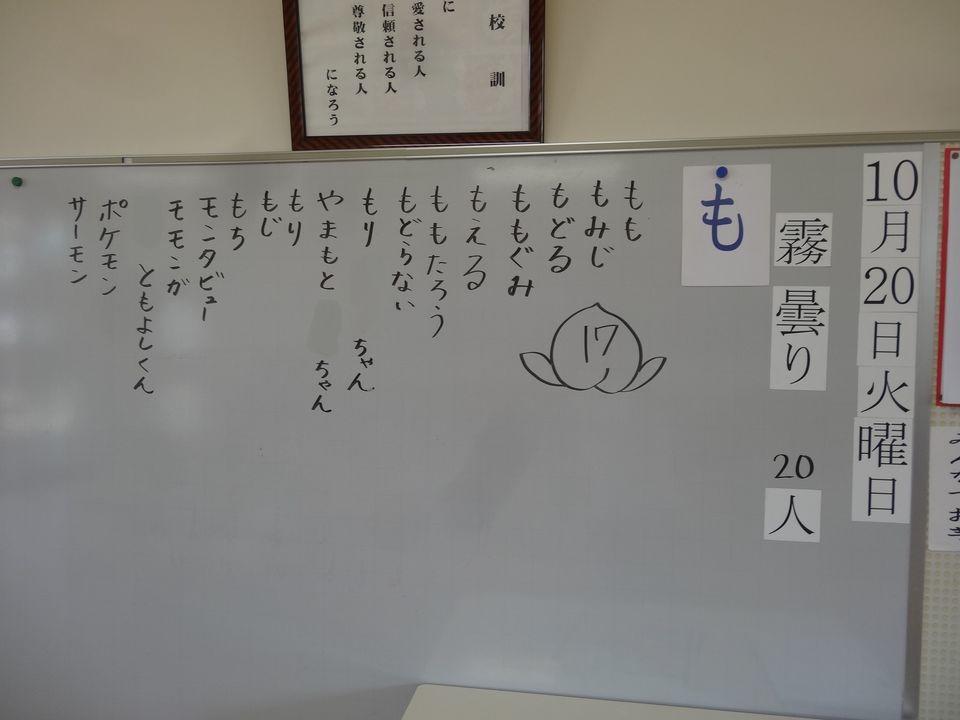 校訓
に
愛される人
信頼される人
尊敬される人
になろう
10月20日火曜日
霧 曇り 20人
も
もも
もみじ
もどる
ももぐみ
もえる
ももたろう
もどらない
もり ちゃん
やまもと ちゃん
もり
もじ
もち
モンタビュー
モモンガ
ともよしくん
ポケモン
サーモン
17